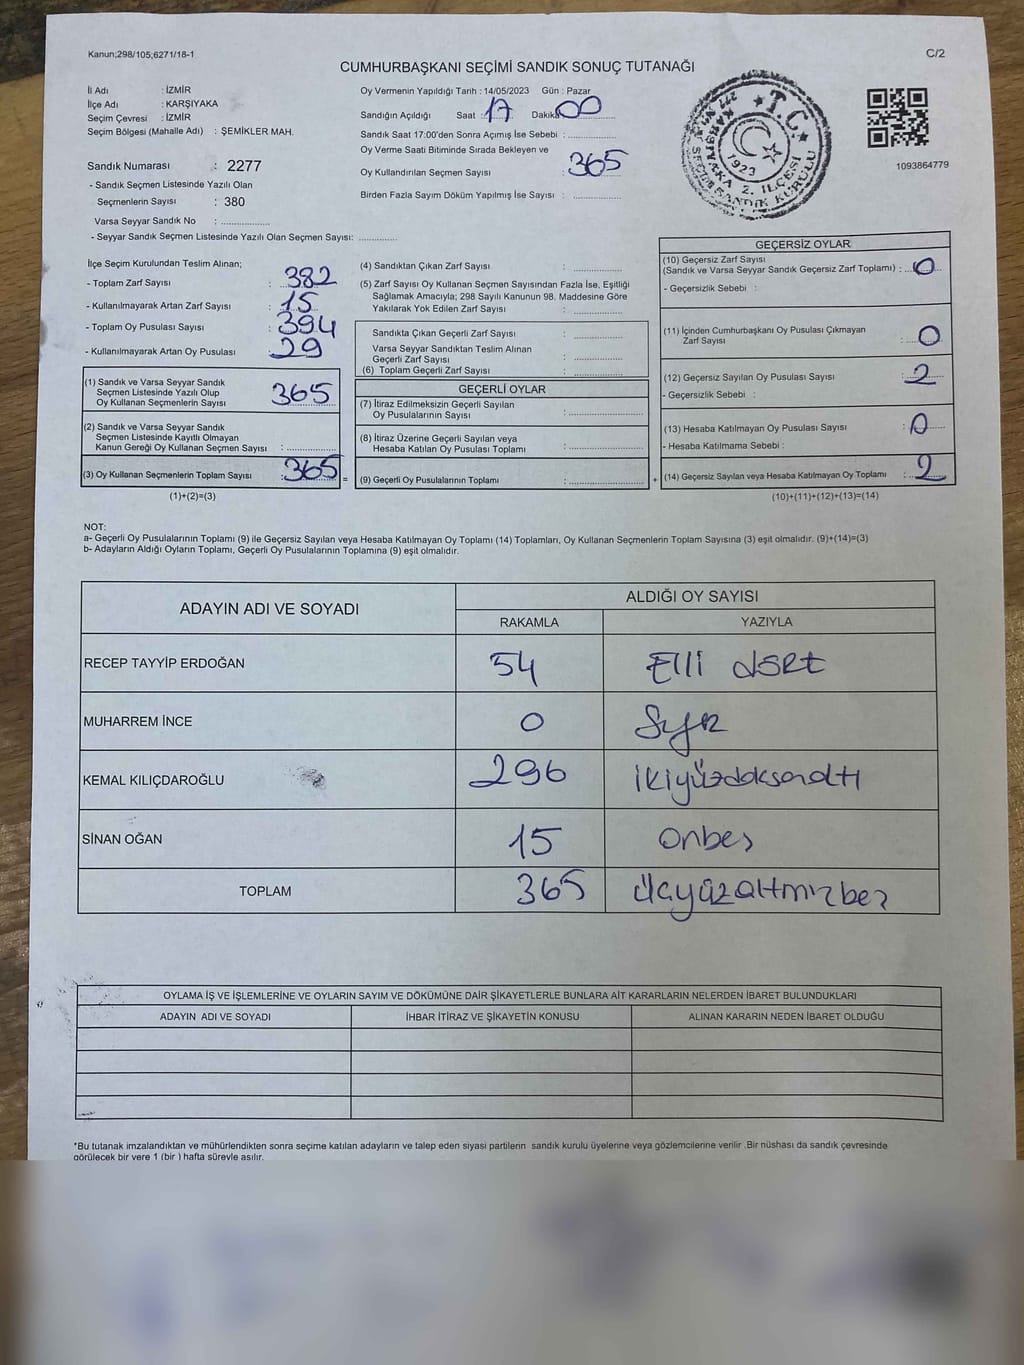 Kanun;298/105;6271/18-1
C/2
CUMHURBAŞKANI SEÇİMİ SANDIK SONUÇ TUTANAĞI
İl Adı : İZMİR
İlçe Adı : KARŞIYAKA
Seçim Çevresi : İZMİR
Seçim Bölgesi (Mahalle Adı) : ŞEMİKLER MAH.
Sandık Numarası : 2277
- Sandık Seçmen Listesinde Yazılı Olan
Seçmenlerin Sayısı : 380
Varsa Seyyar Sandık No : ................
- Seyyar Sandık Seçmen Listesinde Yazılı Olan Seçmen Sayısı: .............
Oy Vermenin Yapıldığı Tarih : 14/05/2023 Gün : Pazar
Sandığın Açıldığı Saat : 17 Dakika 00
Sandık Saat 17:00'den Sonra Açımış İse Sebebi : ................
Oy Verme Saati Bitiminde Sırada Bekleyen ve
Oy Kullandırılan Seçmen Sayısı : 365
Birden Fazla Sayım Döküm Yapılmış İse Sayısı : ................
T.C.
1923
KARŞIYAKA 2. İLÇESİ
SANDIK KURULU
1093864779
İlçe Seçim Kurulundan Teslim Alınan;
- Toplam Zarf Sayısı : 382
- Kullanılmayarak Artan Zarf Sayısı : 15
- Toplam Oy Pusulası Sayısı : 394
- Kullanılmayarak Artan Oy Pusulası : 29
(1) Sandık ve Varsa Seyyar Sandık
Seçmen Listesinde Yazılı Olup
Oy Kullanan Seçmenlerin Sayısı 365
(2) Sandık ve Varsa Seyyar Sandık
Seçmen Listesinde Kayıtlı Olmayan
Kanun Gereği Oy Kullanan Seçmen Sayısı : ................
(3) Oy Kullanan Seçmenlerin Toplam Sayısı : 365 =
(1)+(2)=(3)
(4) Sandıktan Çıkan Zarf Sayısı : ................
(5) Zarf Sayısı Oy Kullanan Seçmen Sayısından Fazla İse, Eşitliği
Sağlamak Amacıyla; 298 Sayılı Kanunun 98. Maddesine Göre
Yakılarak Yok Edilen Zarf Sayısı : ................
Sandıkta Çıkan Geçerli Zarf Sayısı : ................
Varsa Seyyar Sandıktan Teslim Alınan
Geçerli Zarf Sayısı : ................
(6) Toplam Geçerli Zarf Sayısı : ................
GEÇERLİ OYLAR
(7) İtiraz Edilmeksizin Geçerli Sayılan
Oy Pusulalarının Sayısı : ................
(8) İtiraz Üzerine Geçerli Sayılan veya
Hesaba Katılan Oy Pusulaları Toplamı : ................
(9) Geçerli Oy Pusulalarının Toplamı : ................ +
GEÇERSİZ OYLAR
(10) Geçersiz Zarf Sayısı
(Sandık ve Varsa Seyyar Sandık Geçersiz Zarf Toplamı) : 0
- Geçersizlik Sebebi :
(11) İçinden Cumhurbaşkanı Oy Pusulası Çıkmayan
Zarf Sayısı : 0
(12) Geçersiz Sayılan Oy Pusulası Sayısı : 2
- Geçersizlik Sebebi :
(13) Hesaba Katılmayan Oy Pusulası Sayısı : 0
- Hesaba Katılmama Sebebi :
(14) Geçersiz Sayılan veya Hesaba Katılmayan Oy Toplamı : 2
(10)+(11)+(12)+(13)=(14)
NOT:
a- Geçerli Oy Pusulalarının Toplamı (9) ile Geçersiz Sayılan veya Hesaba Katılmayan Oy Toplamı (14) Toplamları, Oy Kullanan Seçmenlerin Toplam Sayısına (3) eşit olmalıdır. (9)+(14)=(3)
b- Adayların Aldığı Oyların Toplamı, Geçerli Oy Pusulalarının Toplamına (9) eşit olmalıdır.
ADAYIN ADI VE SOYADI
ALDIĞI OY SAYISI
RAKAMLA YAZIYLA
RECEP TAYYİP ERDOĞAN 54 Elli dört
MUHARREM İNCE 0 Sıfır
KEMAL KILIÇDAROĞLU 296 ikiyüzdoksanaltı
SİNAN OĞAN 15 Onbeş
TOPLAM 365 Üçyüzaltmışbeş
OYLAMA İŞ VE İŞLEMLERİNE VE OYLARIN SAYIM VE DÖKÜMÜNE DAİR ŞİKAYETLERLE BUNLARA AİT KARARLARIN NELERDEN İBARET BULUNDUKLARI
ADAYIN ADI VE SOYADI İHBAR İTİRAZ VE ŞİKAYETİN KONUSU ALINAN KARARIN NEDEN İBARET OLDUĞU
*Bu tutanak imzalandıktan ve mühürlendikten sonra seçime katılan adayların ve talep eden siyasi partilerin sandık kurulu üyelerine veya gözlemcilerine verilir .Bir nüshası da sandık çevresinde
görülecek bir yere 1 (bir ) hafta süreyle asılır.